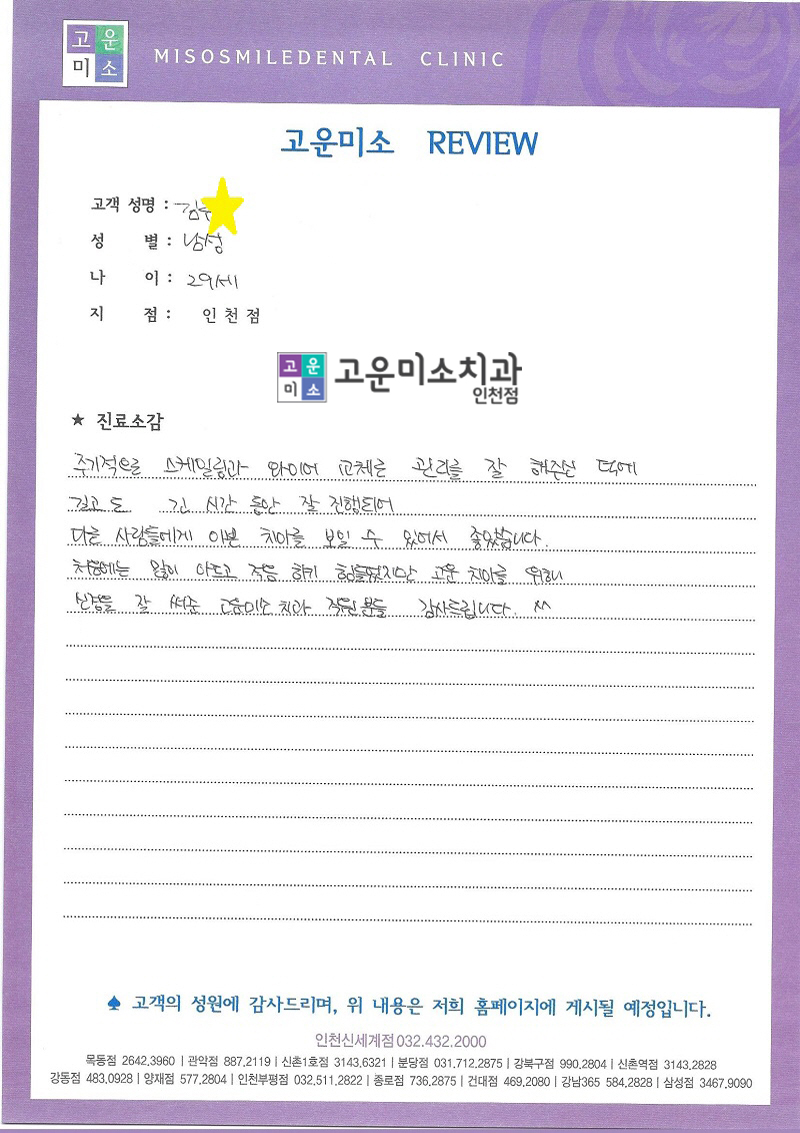 고운
미소
MISOSMILEDENTAL CLINIC
고운미소 REVIEW
고객 성명 : 김
성 별 : 남성
나 이 : 29세
지 점 : 인천점
고운
미소
고운미소치과
인천점
★ 진료소감
주기적으로 스케일링과 와이어 교체로 관리를 잘 해주신 덕에
길고도 긴 시간 동안 잘 진행되어
다른 사람들에게 이쁜 치아를 보일 수 있어서 좋았습니다.
처음에는 많이 아프고 적응 하기 힘들었지만 고운 치아를 위해
신경을 잘 써준 고운미소 치과 직원분들 감사드립니다. ^^
♠ 고객의 성원에 감사드리며, 위 내용은 저희 홈페이지에 게시될 예정입니다.
인천신세계점 032.432.2000
목동점 2642,3960 | 관악점 887,2119 | 신촌1호점 3143,6321 | 분당점 031,712,2875 | 강북구점 990,2804 | 신촌역점 3143,2828
강동점 483,0928 | 양재점 577,2804 | 인천부평점 032,511,2822 | 종로점 736,2875 | 건대점 469,2080 | 강남365 584,2828 | 삼성점 3467,9090